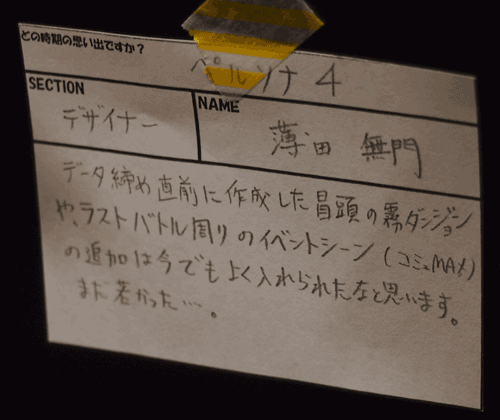 どの時期の思い出ですか?
ペルソナ4
SECTION
デザイナー
NAME
薄田 無門
データ締め直前に作成した冒頭の霧ダンジョン
や、ラストバトル周りのイベントシーン(コミュMAX)
の追加は今でもよく入れられたなと思います。
まだ若かった…。